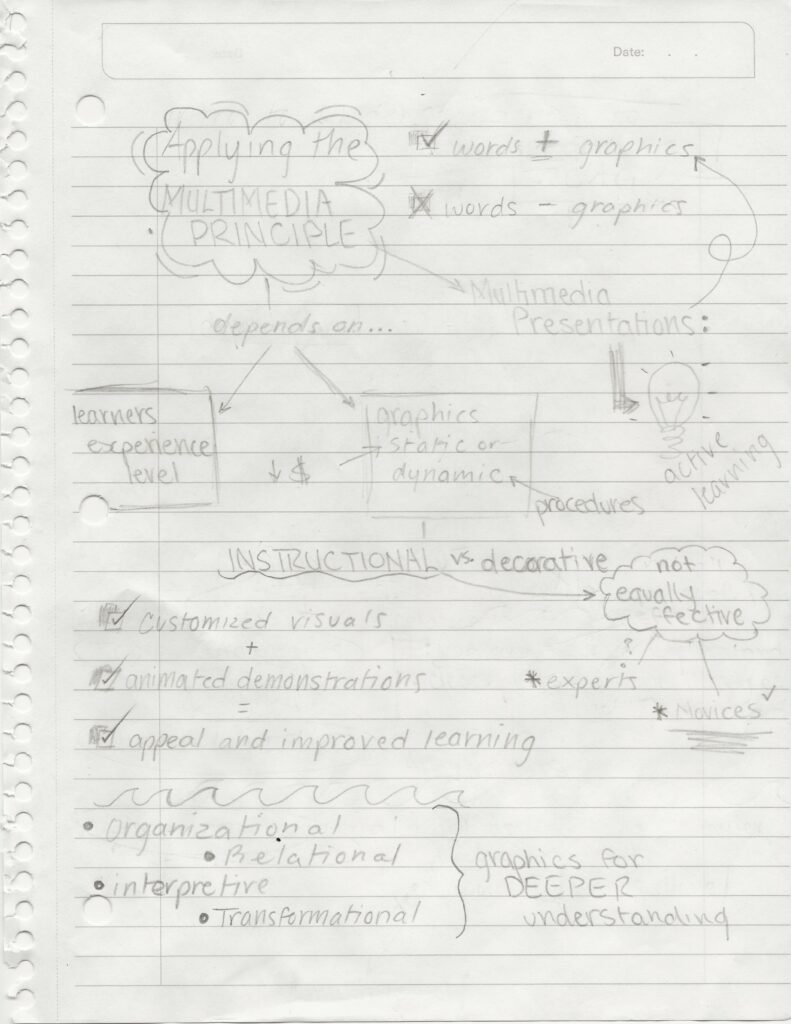 Date: . .
Applying the
MULTIMEDIA
PRINCIPLE
words + graphics
words - graphics
Multimedia
Presentations:
depends on...
learners
experience
level
↓ $
graphics
static or
dynamic
procedures
active
learning
INSTRUCTIONAL vs. decorative
not
equally
effective
?
*experts
*Novices ✓
customized visuals
+
animated demonstrations
=
appeal and improved learning
• Organizational
• Relational
• interpretive
• Transformational
graphics for
DEEPER
understanding